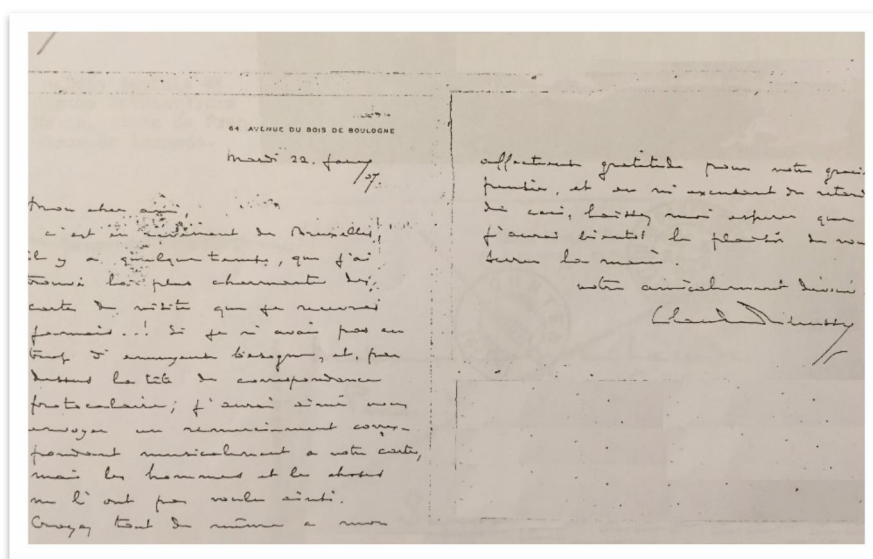 64 AVENUE DU BOIS DE BOULOGNE
Mardi 22. Janv/07.
Mon cher ami,
c'est en revenant de Bruxelles,
il y a quelque temps, que j'ai
trouvé la plus charmante des
carte de visite que je recevrai
jamais..! Si je n'avais pas eu
trop d'ennuyeuse besogne, et, par
dessus la tête de correspondance
protocolaire; j'aurai aimé vous
envoyer un remerciement corres-
pondant musicalement a votre carte,
mais les hommes et les choses
ne l'ont pas voulu ainsi.
Croyez tout de même a mon
affectueuse gratitude pour votre
pensée, et en m'excusant du
de ceci, laissez moi esperer que
j'aurai bientôt le plaisir de
serrer la main.
votre amicalement dévoué
Claude Debussy